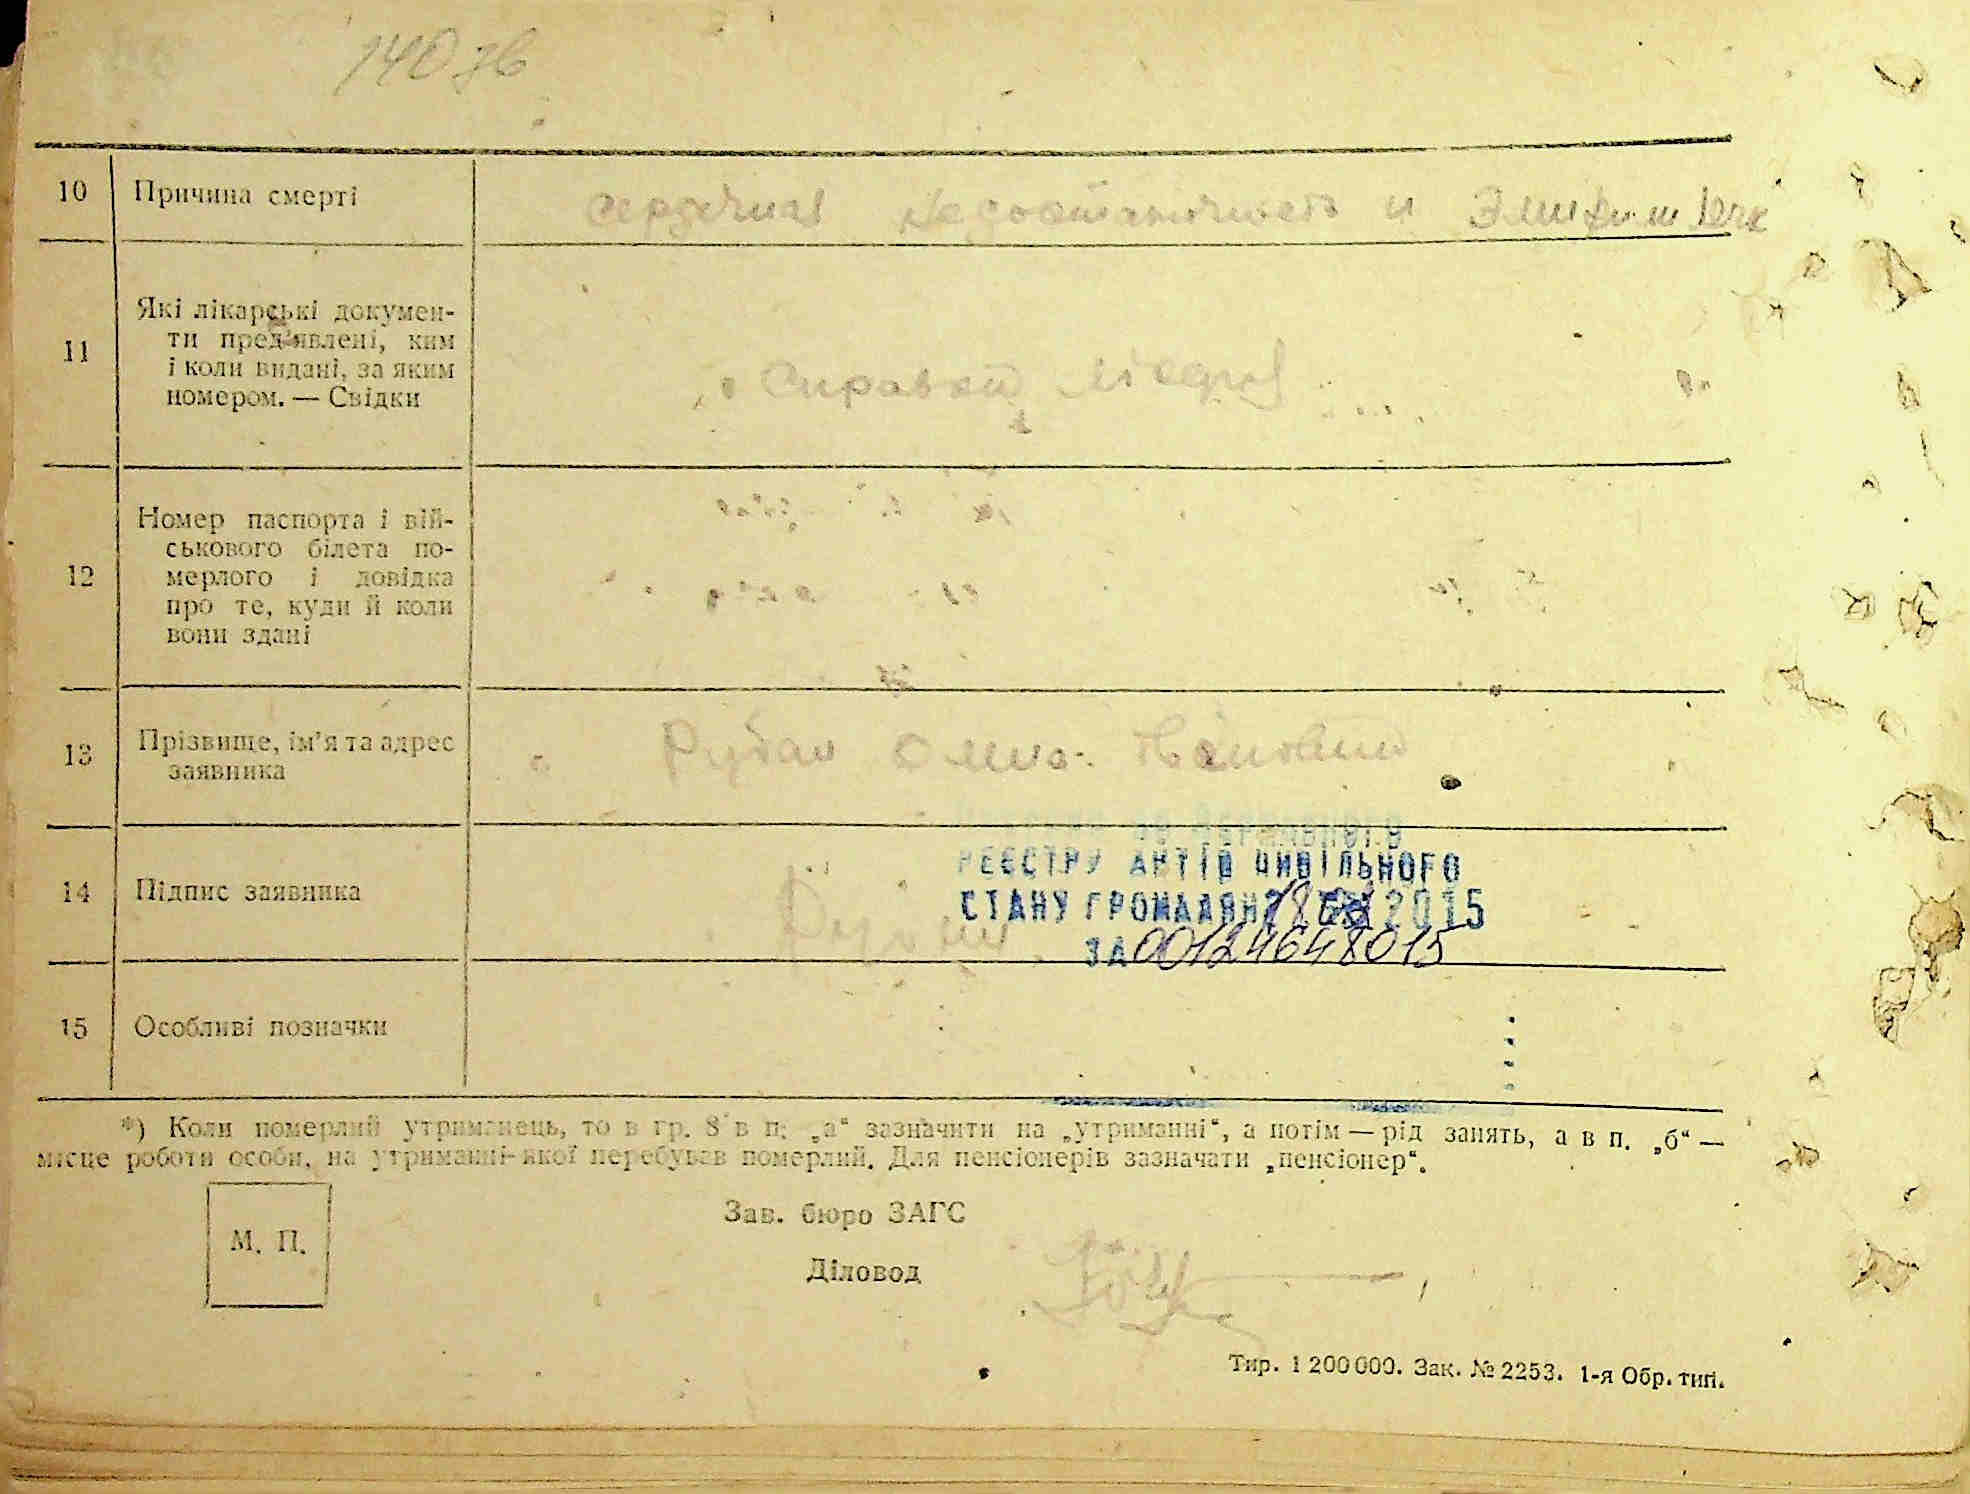 140 зв
10 Причина смерті сердечная недостаточность и
11 Які лікарські докумен-
ти пред'явлені, ким
і коли видані, за яким
номером. — Свідки
12 Номер паспорта і вій-
ськового білета по-
мерлого і довідка
про те, куди й коли
вони здані
13 Прізвище, ім'я та адрес
заявника
Рубан
державного
РЕЄСТРУ АКТІВ ЦИВІЛЬНОГО
14 Підпис заявника
СТАНУ ГРОМАДЯН 2015
ЗА 00124648015
15 Особливі позначки
*) Коли померлий утриманець, то в гр. 8 в п. „а“ зазначити на „утриманні“, а потім — рід занять, а в п. „б“ —
місце роботи особи, на утриманні якої перебував померлий. Для пенсіонерів зазначати „пенсіонер“.
М. П.
Зав. бюро ЗАГС
Діловод
Тир. 1 200 000. Зак. № 2253. 1-я Обр. тип.